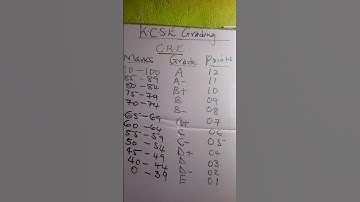 KCSE Grading
CRE
Marks Grade Points
90-100 A 12
85-89 A- 11
80-84 B+ 10
75-79 B 09
70-74 B- 08
65-69 C+ 07
60-64 C 06
55-59 C- 05
50-54 D+ 04
45-49 D 03
40-44 D- 02
0-39 E 01